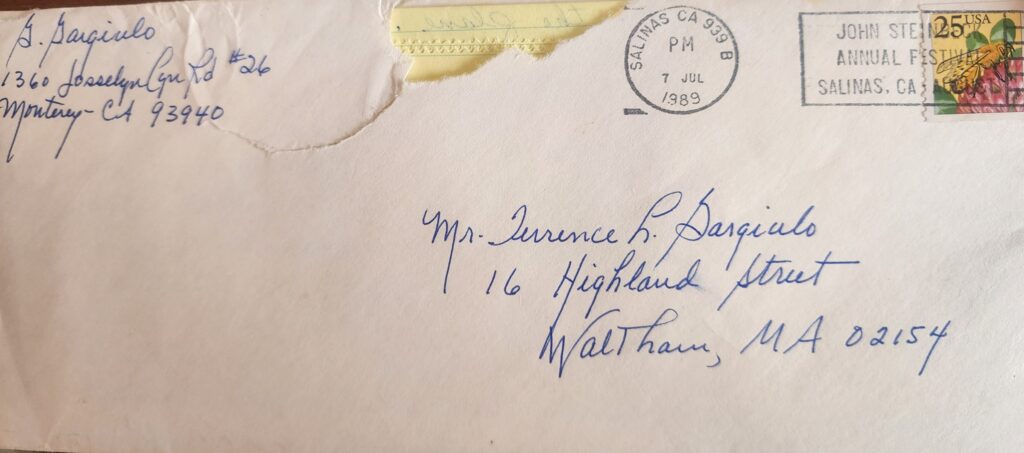 G. Gargiulo
1360 Josselyn Cyn Rd #26
Monterey - CA 93940
the
SALINAS CA 939 B
PM
7 JUL
1989
JOHN
ANNUAL FESTIVAL
SALINAS, CA
25 USA
Mr. Terrence L. Gargiulo
16 Highland Street
Waltham, MA 02154